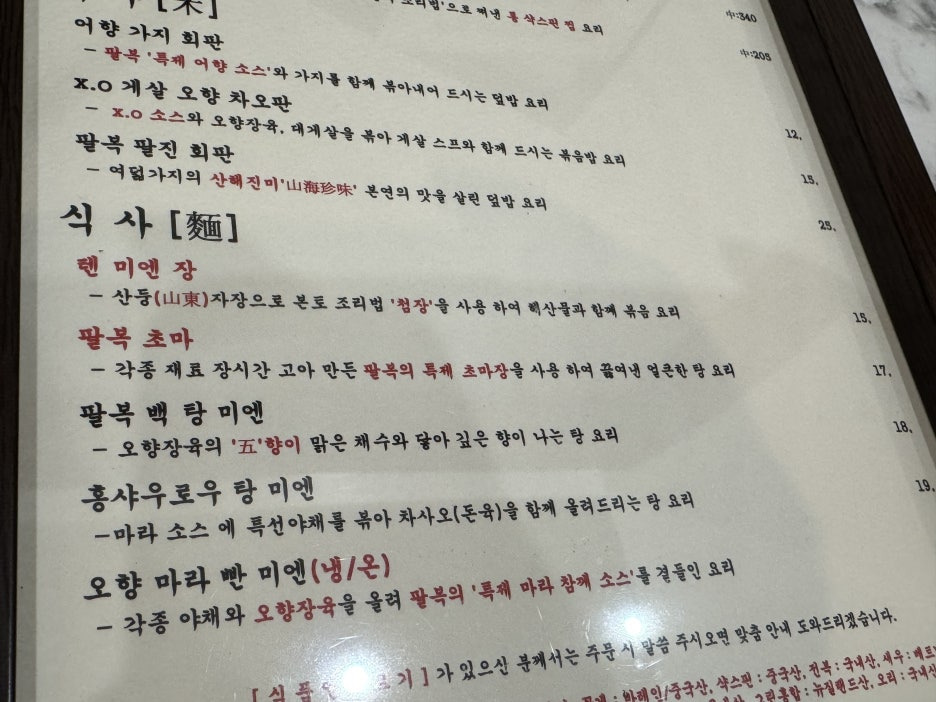 [米]
조리법'으로 쪄낸 통 샥스핀 찜 요리 中:340
中:205
어향 가지 회판
- 팔복 '특제 어향 소스'와 가지를 함께 볶아내어 드시는 덮밥 요리 12.
x.o 게살 오향 차오판
- x.o 소스와 오향장육, 대게살을 볶아 게살 스프와 함께 드시는 볶음밥 요리 15.
팔복 팔진 회판
- 여덟가지의 산해진미'山海珍味' 본연의 맛을 살린 덮밥 요리 25.
식 사 [麵]
텐 미엔 장
- 산둥(山東)자장으로 본토 조리법 '첨장'을 사용 하여 해산물과 함께 볶음 요리 15.
팔복 초마
- 각종 재료 장시간 고아 만든 팔복의 특제 초마장을 사용 하여 끓여낸 얼큰한 탕 요리 17.
팔복 백 탕 미엔
- 오향장육의 '五'향이 맑은 채수와 닿아 깊은 향이 나는 탕 요리 18.
홍샤우로우 탕 미엔
-마라 소스 에 특선야채를 볶아 차사오(돈육)을 함께 올려드리는 탕 요리 19.
오향 마라 빤 미엔(냉/온)
- 각종 야채와 오향장육을 올려 팔복의 '특제 마라 참깨 소스'를 곁들인 요리
[ 식 품 기 ] 가 있으신 분께서는 주문 시 말씀 주시오면 맞춤 안내 도와드리겠습니다.
: 바레인/중국산, 샥스핀 : 중국산, 전복 : 국내산, 새우 : 베트
그린홍합 : 뉴질랜드산, 오리 : 국내산